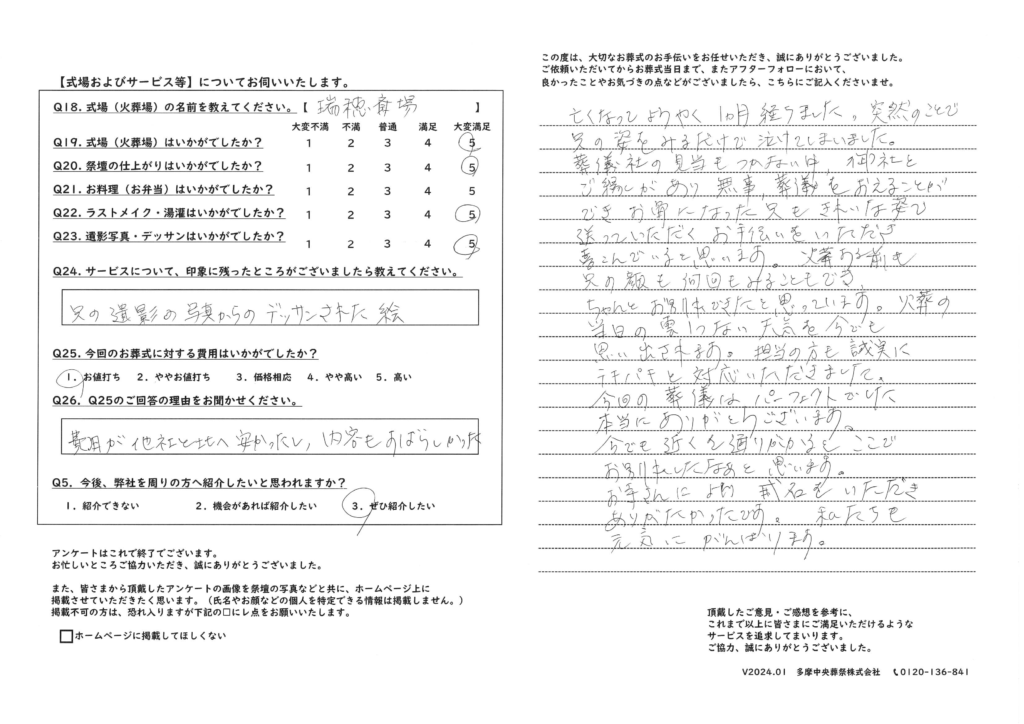 【式場およびサービス等】についてお伺いいたします。
Q18. 式場（火葬場）の名前を教えてください。【 瑞穂斎場 】
大変不満 不満 普通 満足 大変満足
Q19. 式場（火葬場）はいかがでしたか？ 1 2 3 4 5
Q20. 祭壇の仕上がりはいかがでしたか？ 1 2 3 4 5
Q21. お料理（お弁当）はいかがでしたか？ 1 2 3 4 5
Q22. ラストメイク・湯灌はいかがでしたか？ 1 2 3 4 5
Q23. 遺影写真・デッサンはいかがでしたか？ 1 2 3 4 5
Q24. サービスについて、印象に残ったところがございましたら教えてください。
兄の遺影の写真からのデッサンされた絵
Q25. 今回のお葬式に対する費用はいかがでしたか？
1. お値打ち 2. ややお値打ち 3. 価格相応 4. やや高い 5. 高い
Q26. Q25のご回答の理由をお聞かせください。
費用が他社と比べ安かったし、内容もすばらしかった
Q5. 今後、弊社を周りの方へ紹介したいと思われますか？
1. 紹介できない 2. 機会があれば紹介したい 3. ぜひ紹介したい
アンケートはこれで終了でございます。
お忙しいところご協力いただき、誠にありがとうございました。
また、皆さまから頂戴したアンケートの画像を祭壇の写真などと共に、ホームページ上に
掲載させていただきたく思います。（氏名やお顔などの個人を特定できる情報は掲載しません。）
掲載不可の方は、恐れ入りますが下記の□にレ点をお願いいたします。
□ホームページに掲載してほしくない
この度は、大切なお葬式のお手伝いをお任せいただき、誠にありがとうございました。
ご依頼いただいてからお葬式当日まで、またアフターフォローにおいて、
良かったことやお気づきの点などがございましたら、こちらにご記入くださいませ。
亡くなってようやく1ヵ月経ちました。突然のことで
兄の姿をみるだけで泣けてしまいました。
葬儀社の見当もつかない中、御社と
ご縁があり無事、葬儀をおえることが
でき お骨になった兄もきれいな姿で
送っていただく お手伝いをいただき
喜こんでいると思います。火葬する前も
兄の顔も何回もみることもでき、
ちゃんとお別れできたと思っています。火葬の
当日の雲1つない天気を今でも
思い出されます。担当の方も誠実に
テキパキと対応いただきました。
今回の葬儀はパーフェクトでした
本当にありがとうございます。
今でも近くを通りかかると ここで
お別れしたなぁと思います。
お寺さんにより 戒名をいただき
ありがたかったです。私たちも
元気にがんばります。
頂戴したご意見・ご感想を参考に、
これまで以上に皆さまにご満足いただけるような
サービスを追求してまいります。
ご協力、誠にありがとうございました。
V2024.01 多摩中央葬祭株式会社 0120-136-841